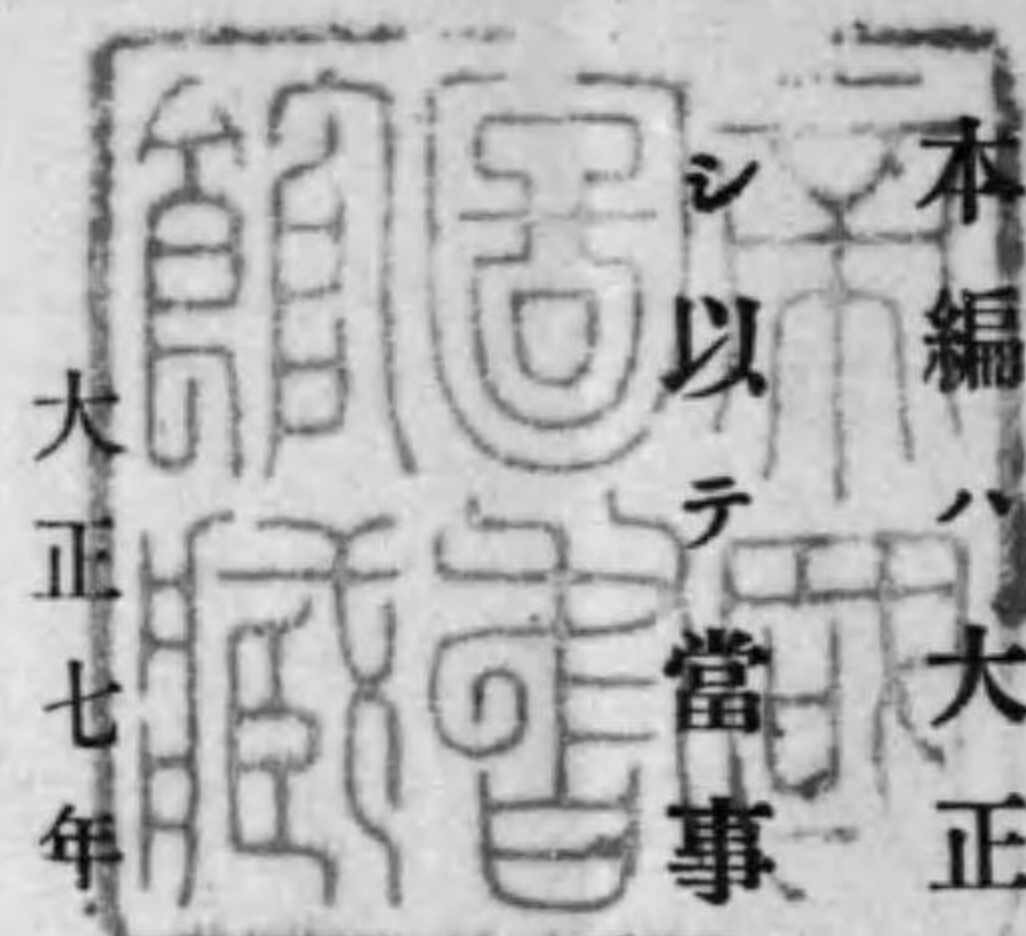 本編ハ大正
シ以テ當事
大正七年
帝國
圖書
館藏